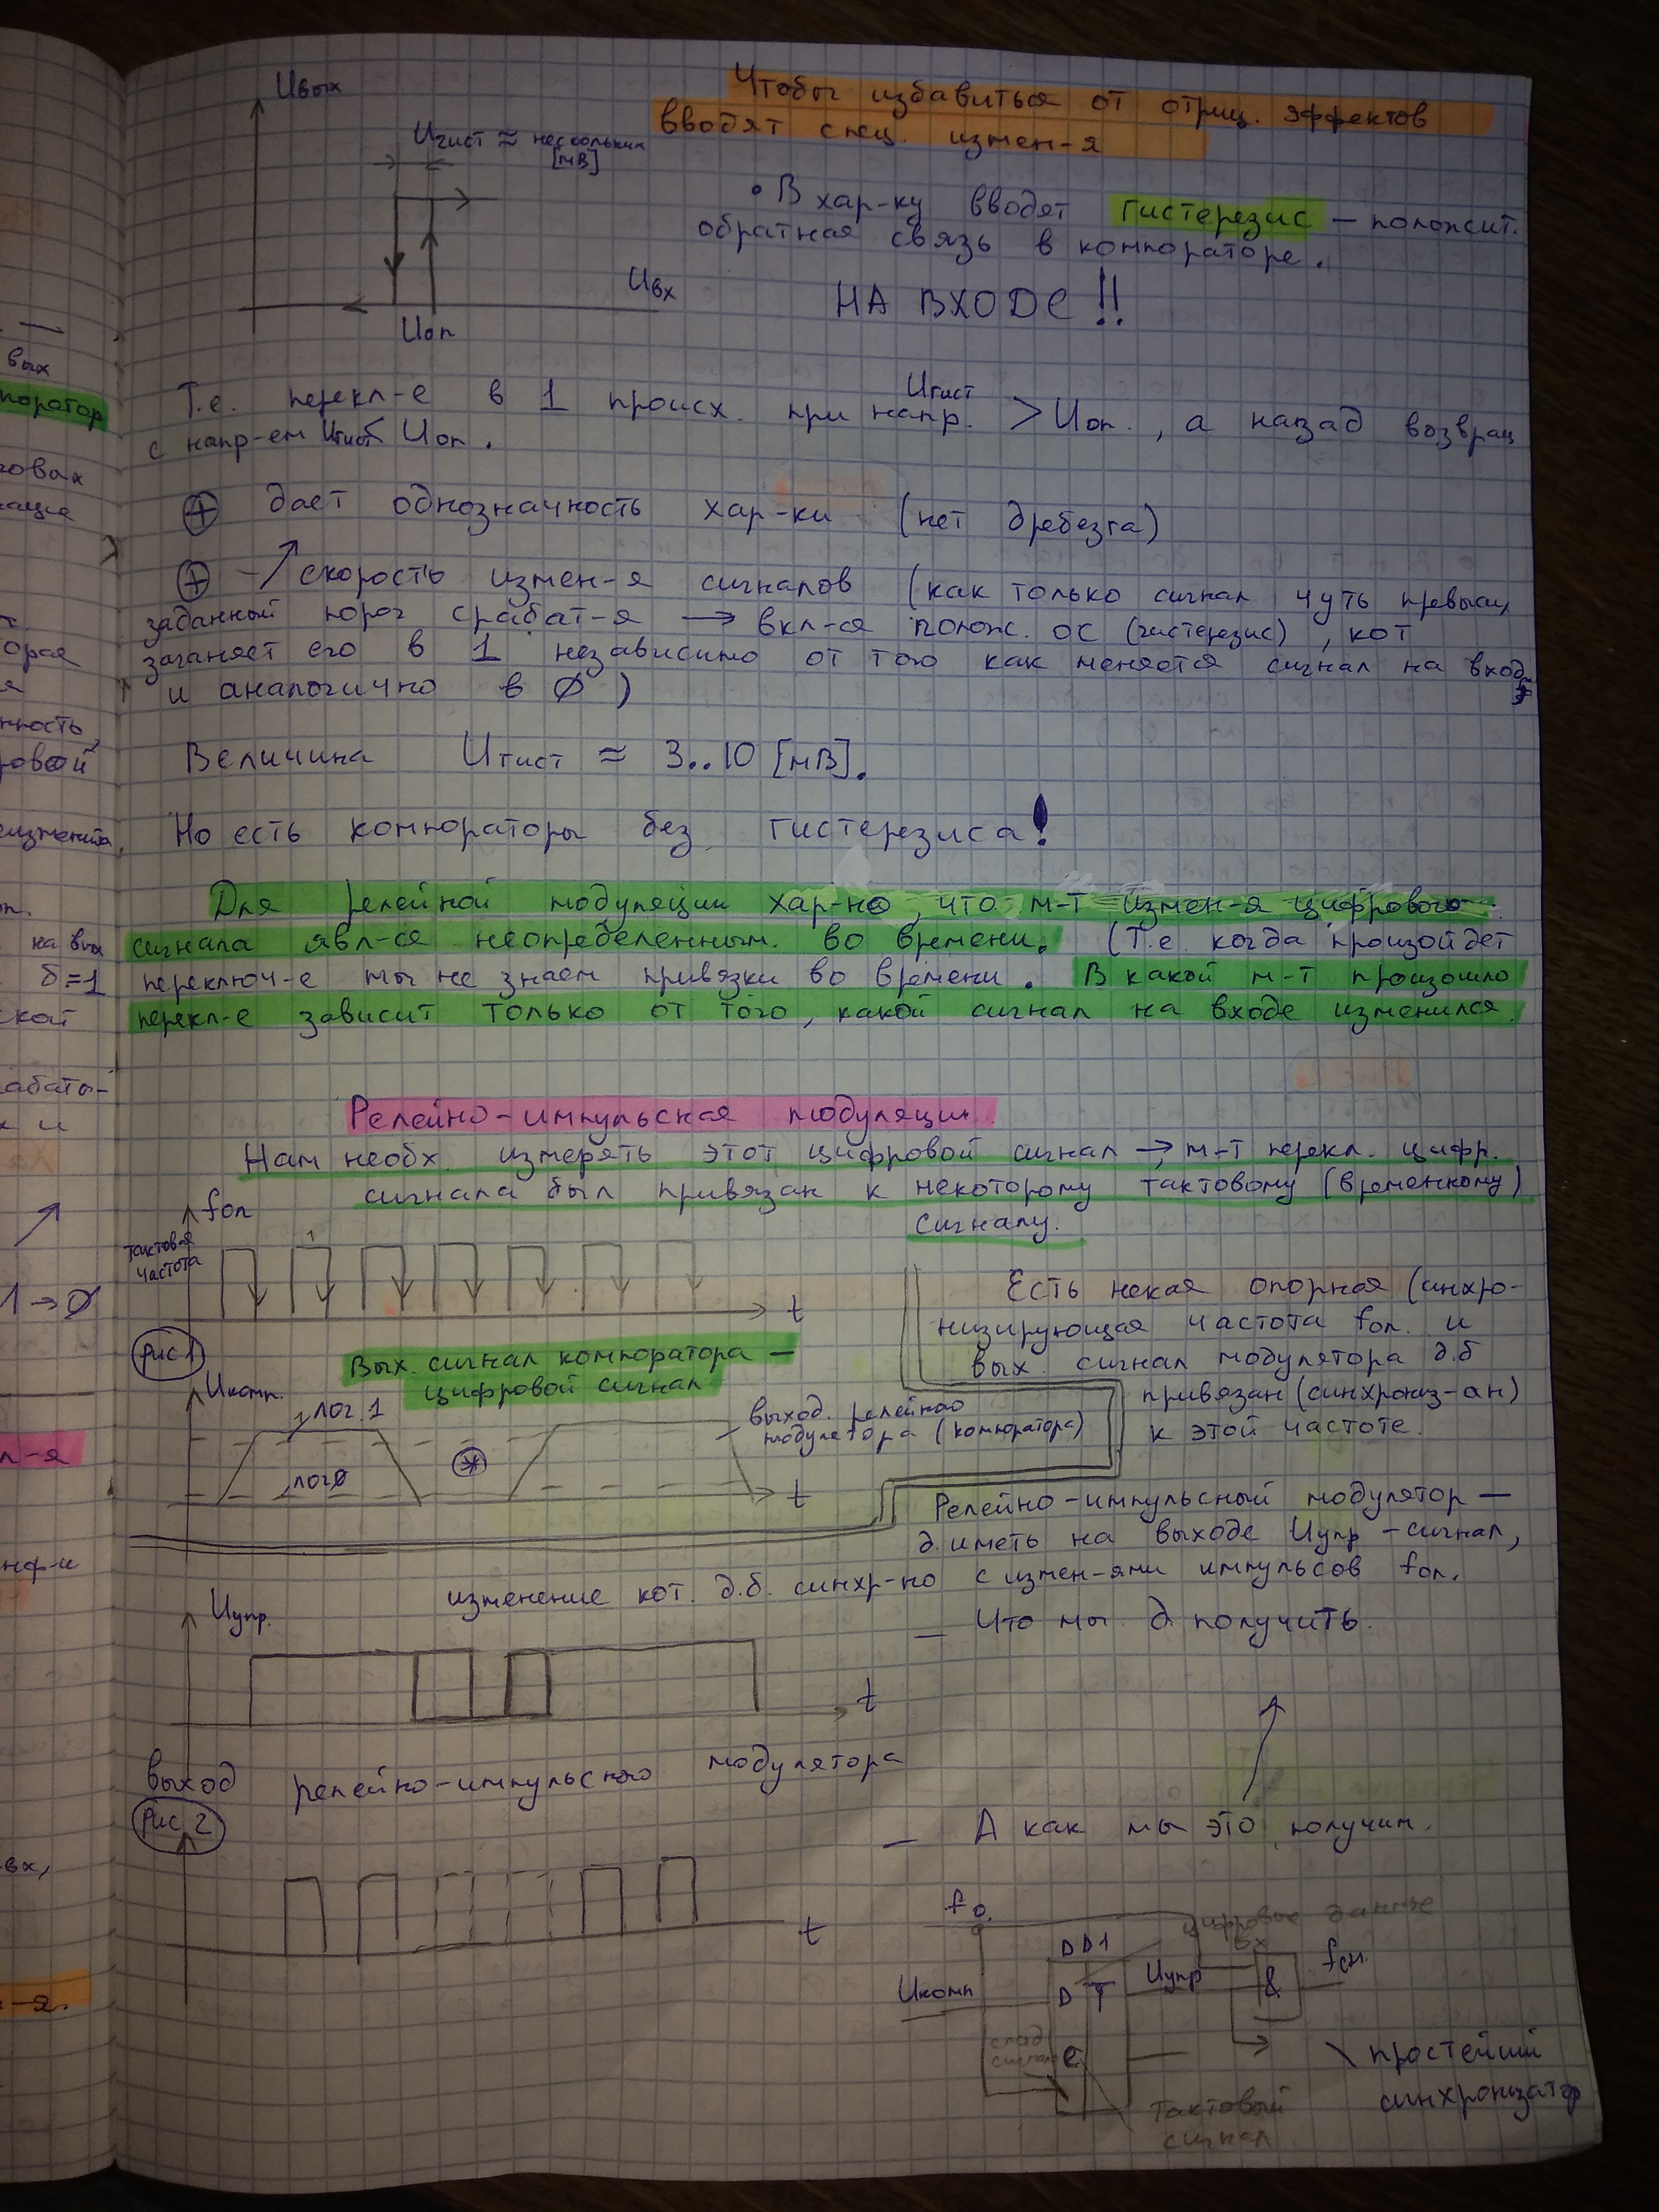 Uвых
Uгист ≈ нескольких
[мВ]
Uвх
Uоп
Чтобы избавиться от отриц. эффектов
вводят спец. измен-я
• В хар-ку вводят гистерезис — положит.
обратная связь в компораторе.
НА ВХОДЕ!!
Uгист
Т.е. перекл-е в 1 происх. при напр. > Uоп., а назад возвращ
с напр-ем Uгист < Uоп.
⊕ дает однозначность хар-ки (нет дребезга)
⊕ - ↗ скорость измен-я сигналов (как только сигнал чуть превысил
заданный порог срабат-я → вкл-ся полож. ОС (гистерезис), кот
загоняет его в 1 независимо от того как меняется сигнал на входе
и аналогично в 0)
Величина Uгист ≈ 3..10 [мВ].
Но есть компораторы без гистерезиса!
Для релейной модуляции хар-но, что м-т измен-я цифрового
сигнала явл-ся неопределенным во времени. (Т.е. когда произойдет
переключ-е мы не знаем привязки во времени. В какой м-т произошло
перекл-е зависит только от того, какой сигнал на входе изменился.
Релейно-импульская модуляция.
Нам необх. измерять этот цифровой сигнал → м-т перекл. цифр.
сигнала был привязан к некоторому тактовому (временному)
сигналу.
fоп
тактовая
частота
t
рис 1
Вых. сигнал компоратора —
цифровой сигнал
Есть некая опорная (синхро-
низирующая частота fоп. и
вых. сигнал модулятора д.б
привязан (синхрониз-ан)
к этой частоте.
Uкомп.
лог.1
лог0
выход релейного
модулятора (компоратора)
t
Релейно-импульсный модулятор —
д. иметь на выходе Uупр - сигнал,
изменение кот. д.б. синхр-но с измен-ями импульсов fоп.
— Что мы д получить.
Uупр.
t
выход релейно-импульсного модулятора
рис 2
t
— А как мы это получим.
f0.
цифровые данные
вх
DD1
Uкомп
D T
Uупр
&
fсч.
спад
сигнала
C
Тактовый
сигнал
простейший
синхронизатор
вых
поратор
говых
орая
я
нность,
ровой
на вых
δ=1
ской
абаты-
х и
1→0
л-я
нф-и
вх,
-я.